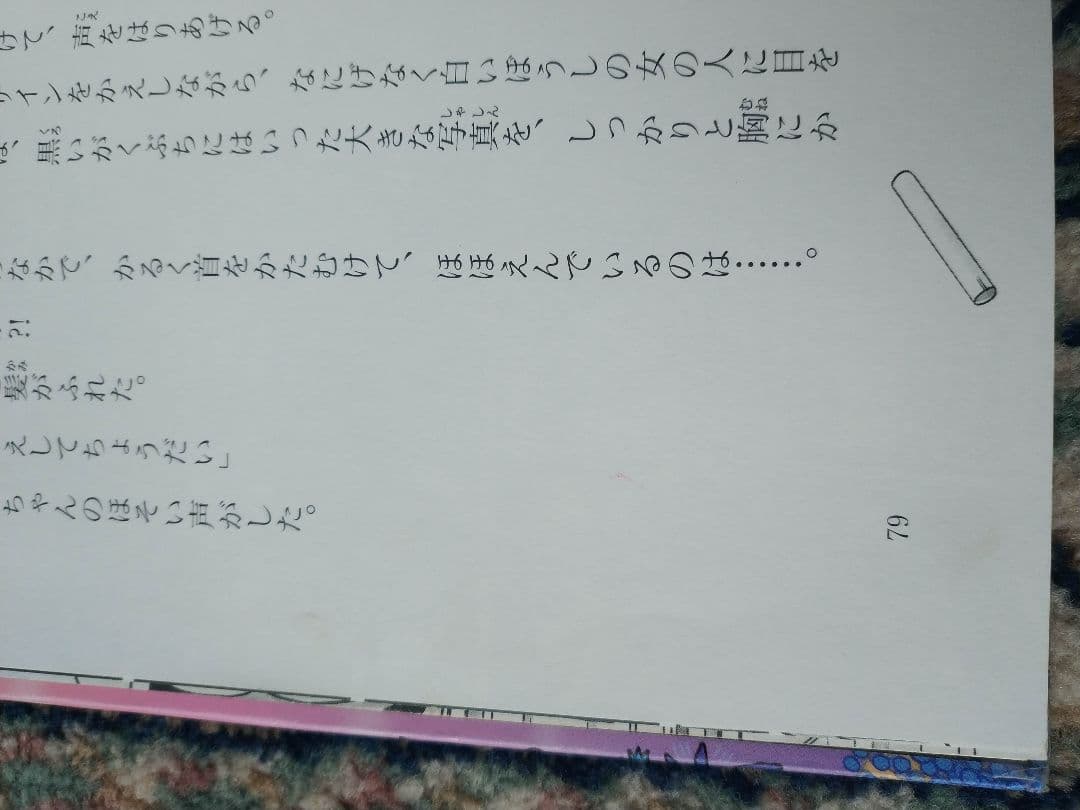 けて、声をはりあげる。
インをかえしながら、なにげなく白いぼうしの女の人に目を
は、黒いがくぶちにはいった大きな写真を、しっかりと胸にか
なかで、かるく首をかたむけて、ほほえんでいるのは……。
?!
髪がふれた。
えしてちょうだい」
ちゃんのほそい声がした。
79